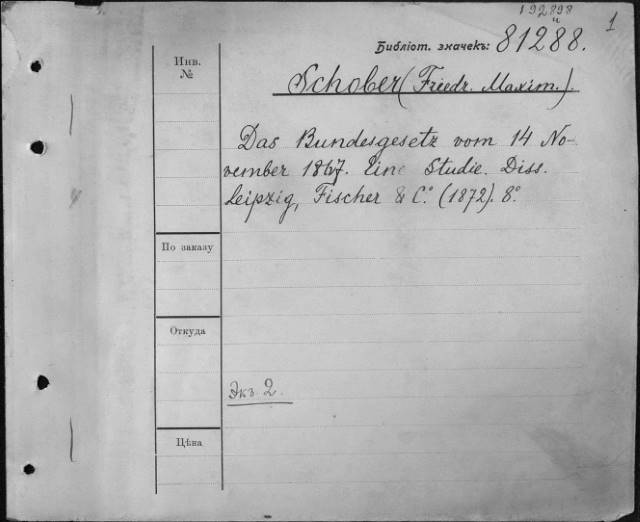 192898
и
1
Библіот. значекъ: 81288.
Инв.
№
Schober (Friedr. Maxim.).
Das Bundesgesetz vom 14 No-
vember 1867. Eine Studie. Diss.
Leipzig, Fischer & C.° (1872). 8°.
По заказу
Откуда
Экз. 2.
Цѣна